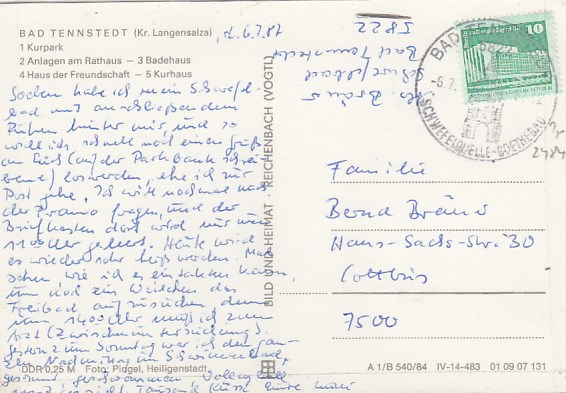 BAD TENNSTEDT (Kr. Langensalza)
d. 6.7.87
1 Kurpark
2 Anlagen am Rathaus – 3 Badehaus
4 Haus der Freundschaft – 5 Kurhaus
Soeben habe ich mein Schwefel-
bad mit anschließendem
Ruhen hinter mir und so
will ich schnell noch einen Gruß
an Euch (auf der Parkbank schrei-
bend) loswerden, ehe ich zur
Post gehe. Ich will nochmal nach
der fragen, und der
Briefkasten dort wird nur um
11 00 Uhr geleert. Heute wird
es wieder sehr heiß werden. Mal
sehen wie ich es einteilen kann,
um noch ein Weilchen das
Freibad aufzusuchen, denn
um 14 00 Uhr muß ich zum
Arzt (Zwischenuntersuchung).
Gestern zum Sonntag war ich den gan-
zen Nachmittag im Schwimmbad,
geschwommen, Volleyball
Tausend Küsse Eure
DDR 0,25 M Foto: Piragel, Heiligenstadt
BILD UND HEIMAT REICHENBACH (VOGTL)
Bräuer
Schwefelbad
Bad Tennstedt
5822
10
BAD TENNSTEDT
5822
-6.7.
SCHWEFELQUELLE-GOETHEBAD
Familie
Bernd Bräuer
Hans-Sachs-Str. 30
Cottbus
7500
A 1/B 540/84 IV-14-483 01 09 07 131